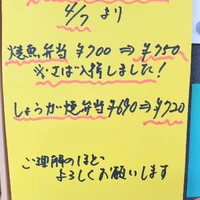 4/7 より
焼魚弁当 ¥700 ⇒ ¥750
※さば入指しました!
しょうが焼弁当 ¥690 ⇒ ¥720
ご理解のほど
よろしくお願いします